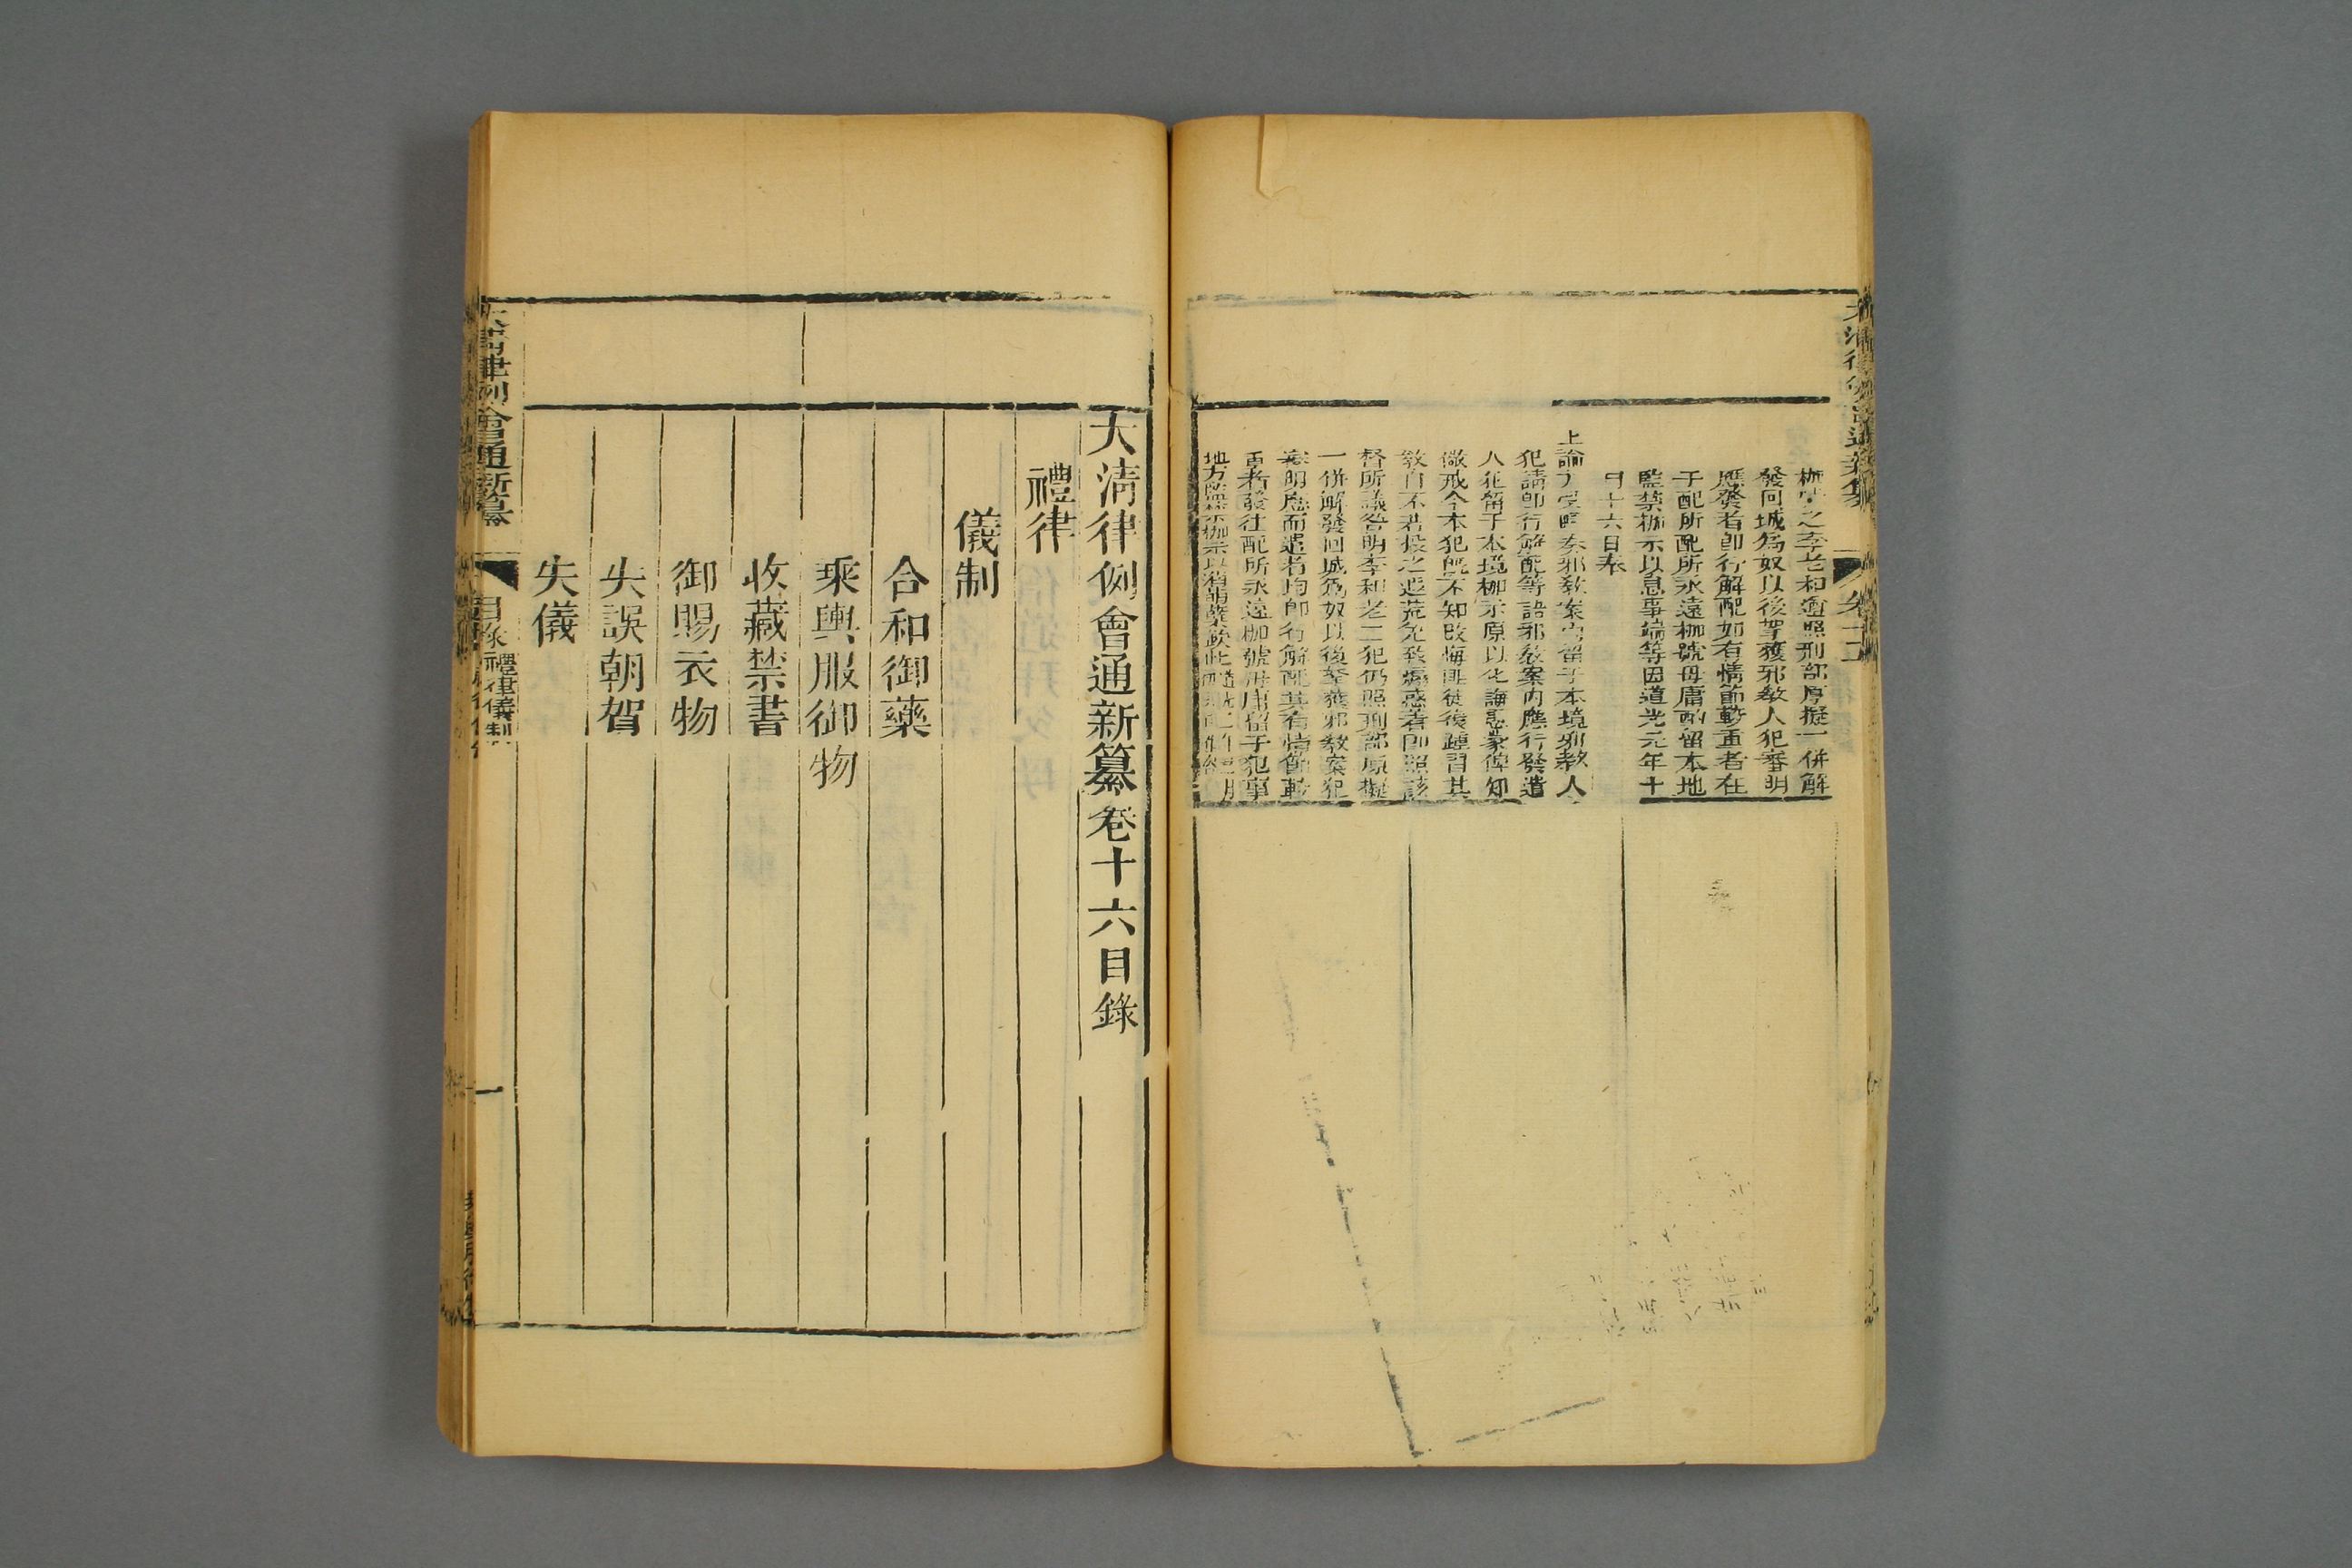 枷號之李老和應照刑部原擬一併解
發回城為奴以後拏獲邪教人犯審明
應發者卽行解配如有情節較重者在
于配所配所永遠枷號毋庸酌留本地
監禁枷示以息事端等因道光元年十
月十六日奉
上諭 奏邪教案內留于本境邪教人
犯請卽行解配等語邪教案內應行發遣
人犯留于本境枷示原以化誨愚蒙俾知
儆戒今本犯旣不知改悔匪徒復踵習其
教自不若投之遐荒免致煽惑著卽照該
督所議咨明李和老二犯仍照刑部原擬
一併解發回城為奴以後拏獲邪教案犯
審明應而遣者均卽行解配其有情節較
重者發往配所永遠枷號毋庸留于犯事
地方監禁枷示以消萌蘖欽此
大清律例會通新纂卷十六目錄
禮律
儀制
合和御藥
乘輿服御物
收藏禁書
御賜衣物
失誤朝賀
失儀
大清律例會通新纂
目錄 禮律儀制
一